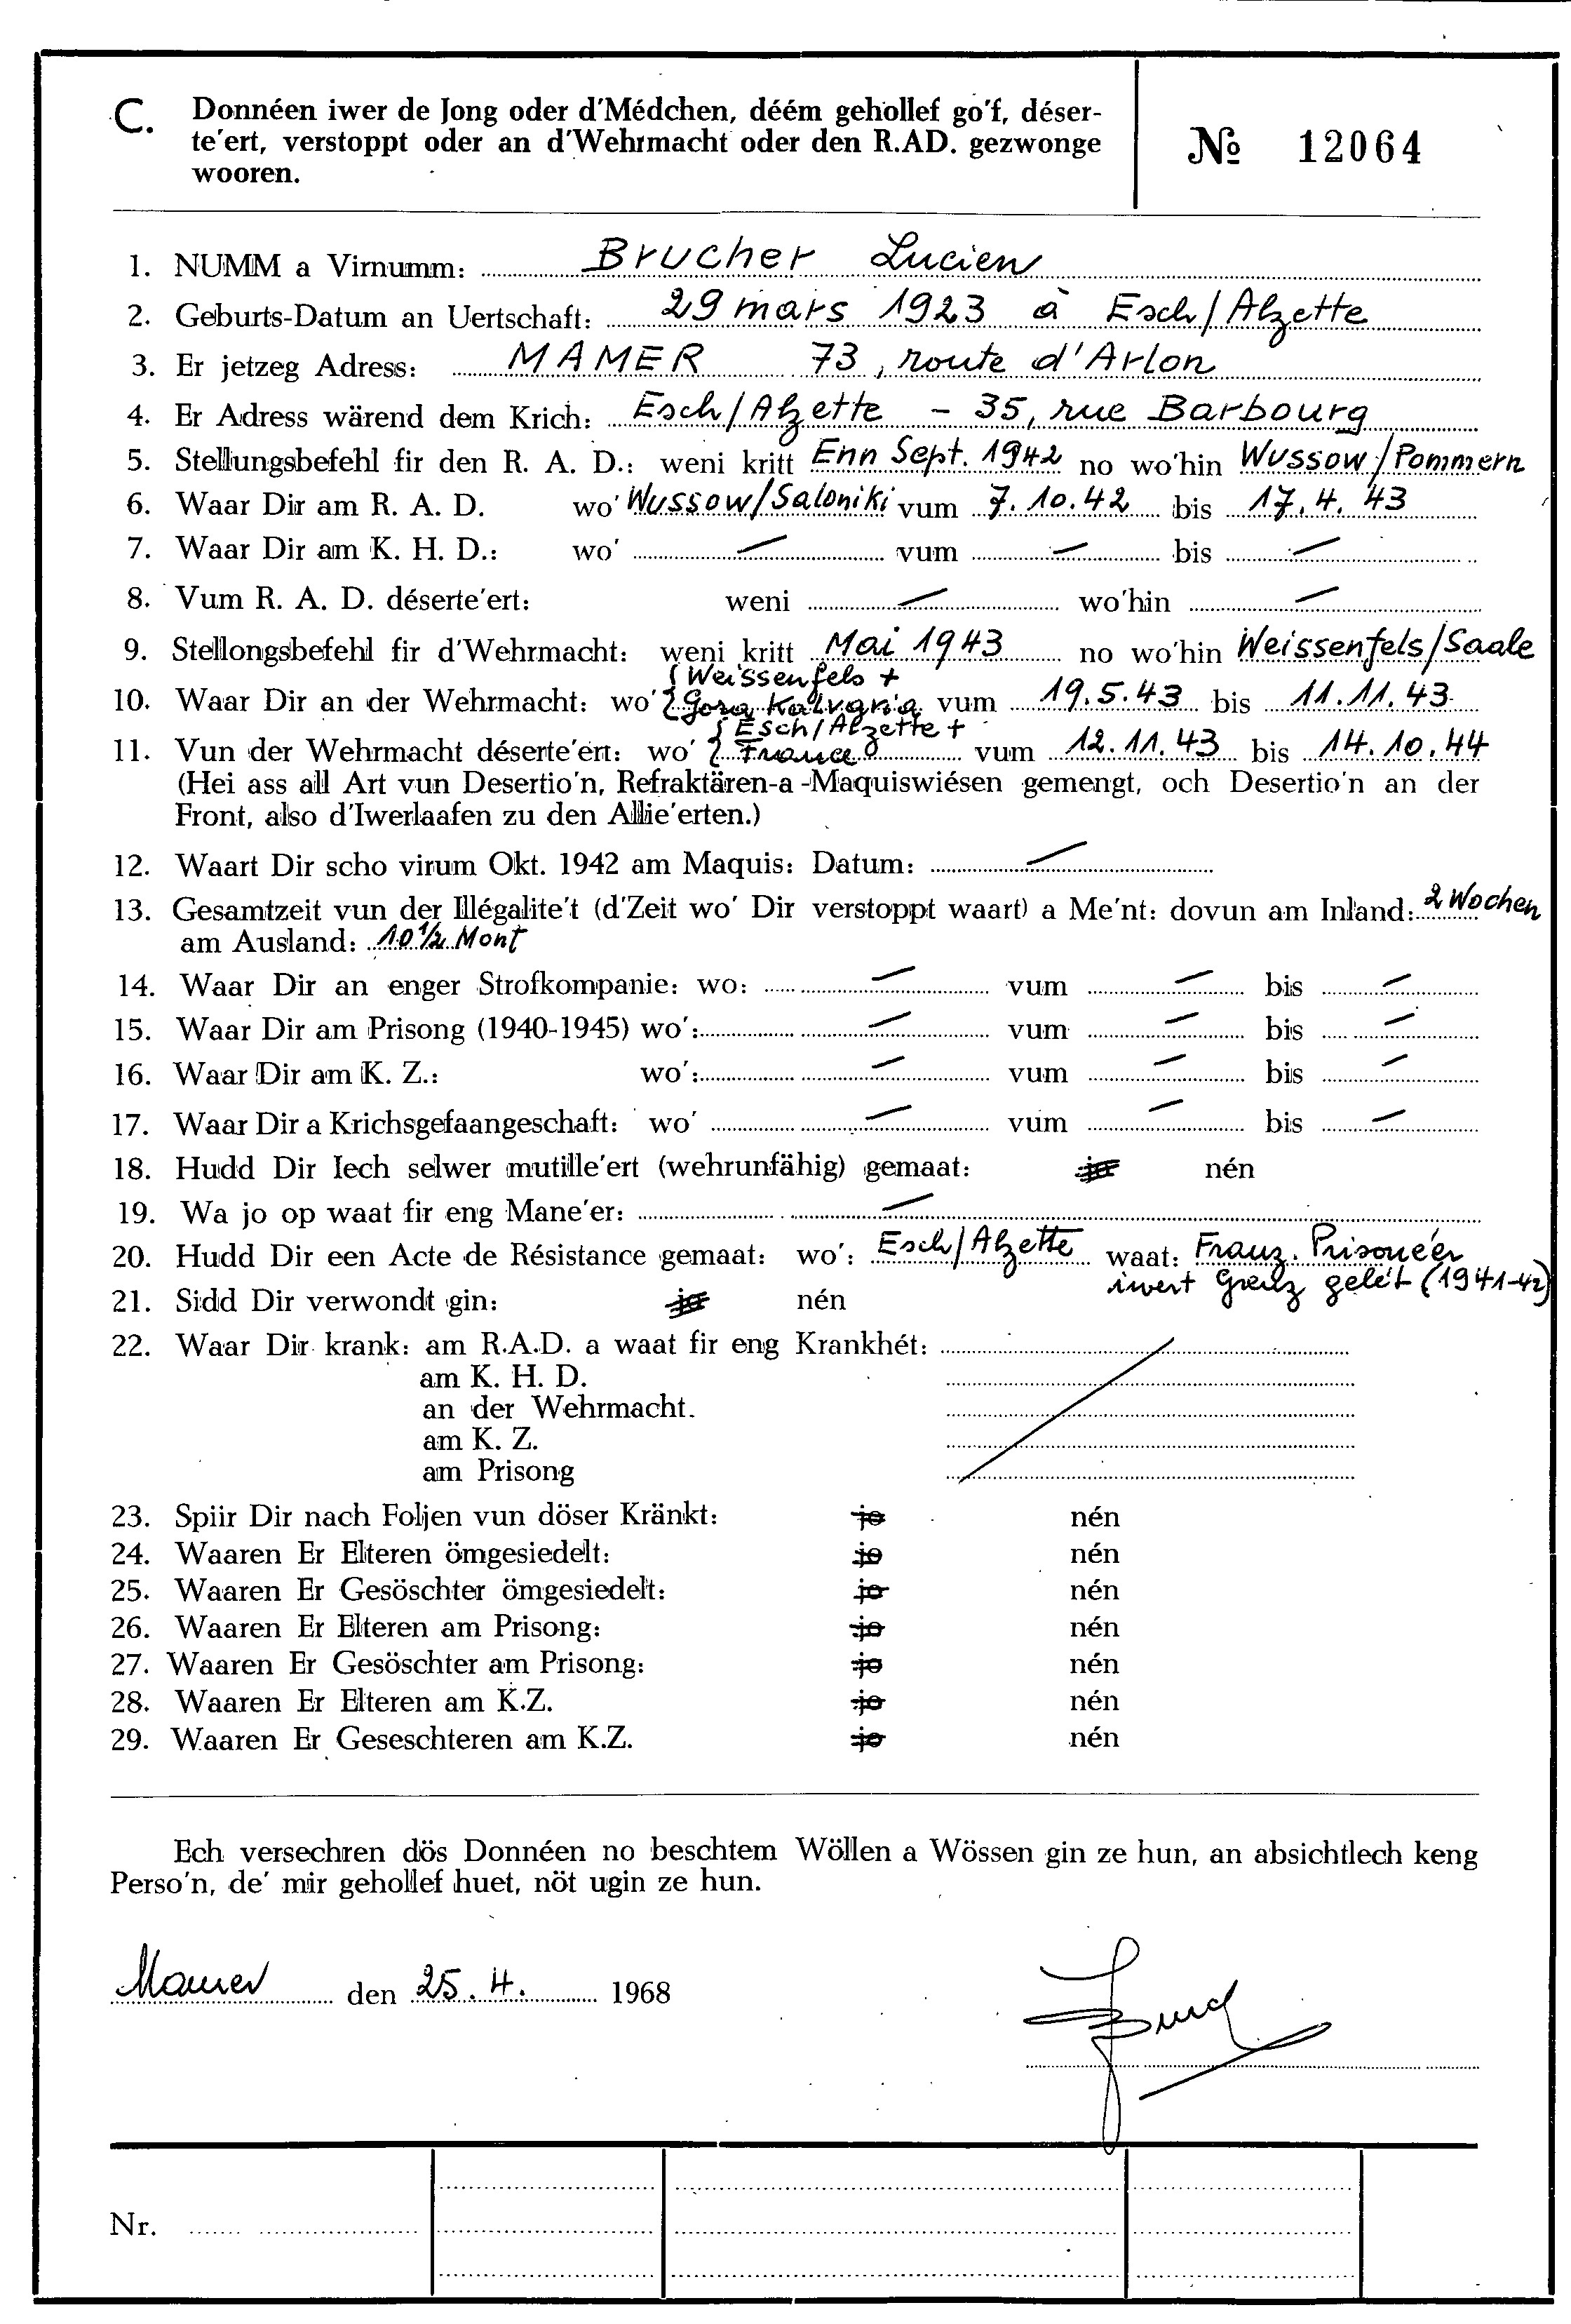 C. Donnéen iwer de Jong oder d'Médchen, déém gehollef go'f, déser-
te'ert, verstoppt oder an d'Wehrmacht oder den R.AD. gezwonge
wooren.
№ 12064
1. NUMM a Virnumm: Brucher Lucien
2. Geburts-Datum an Uertschaft: 29 mars 1923 à Esch/Alzette
3. Er jetzeg Adress: MAMER 73, route d'Arlon
4. Er Adress wärend dem Krich: Esch/Alzette - 35, rue Barbourg
5. Stellungsbefehl fir den R. A. D.: weni kritt Enn Sept. 1942 no wo'hin Wussow/Pommern
6. Waar Dir am R. A. D. wo' Wussow/Saloniki vum 7.10.42 bis 17.4.43
7. Waar Dir am K. H. D.: wo' — vum — bis —
8. Vum R. A. D. déserte'ert: weni — wo'hin —
9. Stellongsbefehl fir d'Wehrmacht: weni kritt Mai 1943 no wo'hin Weissenfels/Saale
10. Waar Dir an der Wehrmacht: wo' { Weissenfels + Gora Kalvaria vum 19.5.43 bis 11.11.43
11. Vun der Wehrmacht déserte'ert: wo' { Esch/Alzette + France vum 12.11.43 bis 14.10.44
(Hei ass all Art vun Desertio'n, Refraktären-a -Maquiswiésen gemengt, och Desertio'n an der
Front, also d'Iwerlaafen zu den Allie'erten.)
12. Waart Dir scho virum Okt. 1942 am Maquis: Datum: —
13. Gesamtzeit vun der Illégalite't (d'Zeit wo' Dir verstoppt waart) a Me'nt: dovun am Inland: 2 Wochen
am Ausland: 10 1/2 Mont
14. Waar Dir an enger Strofkompanie: wo: — vum — bis —
15. Waar Dir am Prisong (1940-1945) wo': — vum — bis —
16. Waar Dir am K. Z.: wo': — vum — bis —
17. Waar Dir a Krichsgefaangeschaft: wo' — vum — bis —
18. Hudd Dir Iech selwer mutille'ert (wehrunfähig) gemaat: jo nén
19. Wa jo op waat fir eng Mane'er: —
20. Hudd Dir een Acte de Résistance gemaat: wo': Esch/Alzette waat: Franz. Prisonéer
iwert Grenz gelét (1941-42)
21. Sidd Dir verwondt gin: jo nén
22. Waar Dir krank: am R.A.D. a waat fir eng Krankhét:
am K. H. D.
an der Wehrmacht.
am K. Z.
am Prisong
23. Spiir Dir nach Foljen vun döser Kränkt: jo nén
24. Waaren Er Elteren ömgesiedelt: jo nén
25. Waaren Er Gesöschter ömgesiedelt: jo nén
26. Waaren Er Elteren am Prisong: jo nén
27. Waaren Er Gesöschter am Prisong: jo nén
28. Waaren Er Elteren am K.Z. jo nén
29. Waaren Er Geseschteren am K.Z. jo nén
Ech versechren dös Donnéen no beschtem Wöllen a Wössen gin ze hun, an absichtlech keng
Perso'n, de' mir gehollef huet, nöt ugin ze hun.
Mamer den 25.4. 1968
Nr.